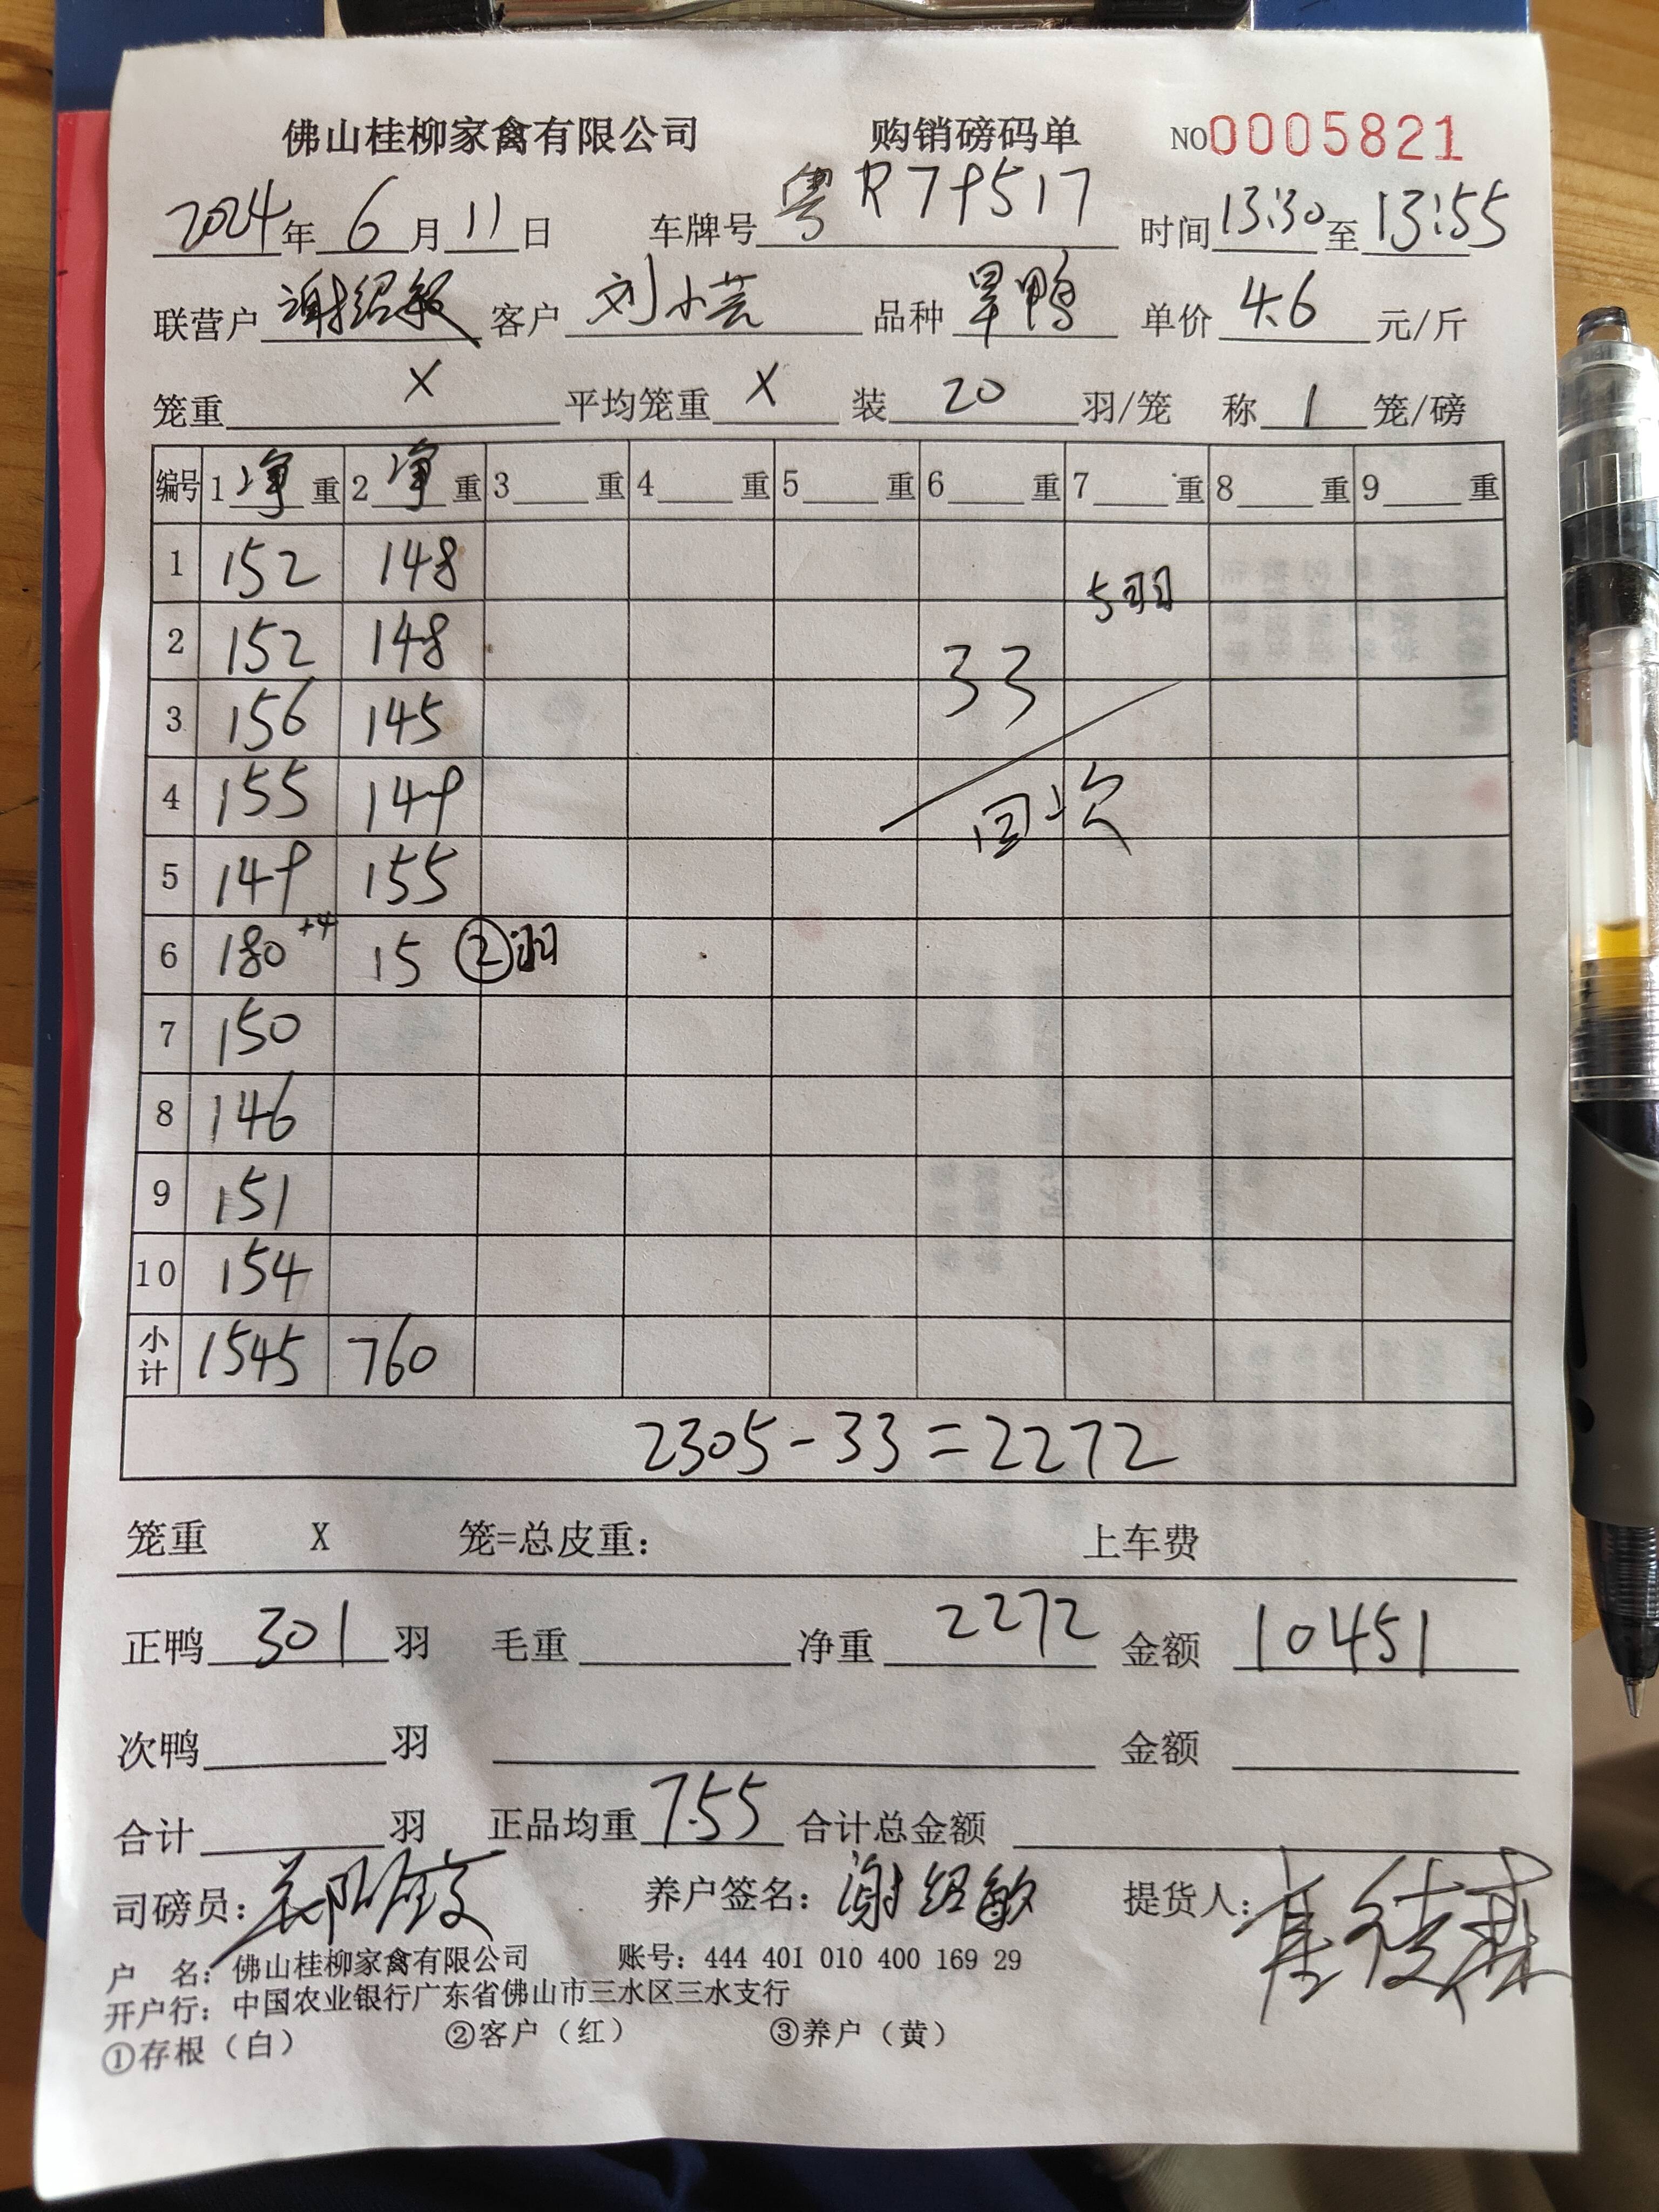 佛山桂柳家禽有限公司 购销磅码单 NO0005821
2024年 6月11日 车牌号 粤R79517 时间13:30至13:55
联营户 谢绍敏 客户 刘小芸 品种 旱鸭 单价 4.6 元/斤
笼重 X 平均笼重 X 装 20 羽/笼 称 1 笼/磅
编号 1净重 2净重 3 重 4 重 5 重 6 重 7 重 8 重 9 重
1 152 148
5羽
2 152 148 33
3 156 145
4 155 149 回次
5 149 155
6 180+4 15 ②羽
7 150
8 146
9 151
10 154
小计 1545 760
2305-33=2272
笼重 X 笼=总皮重: 上车费
正鸭 301 羽 毛重 净重 2272 金额 10451
次鸭 羽 金额
合计 羽 正品均重 7.55 合计总金额
司磅员: 养户签名: 谢绍敏 提货人:
户 名: 佛山桂柳家禽有限公司 账号: 444 401 010 400 169 29
开户行: 中国农业银行广东省佛山市三水区三水支行
①存根（白） ②客户（红） ③养户（黄）